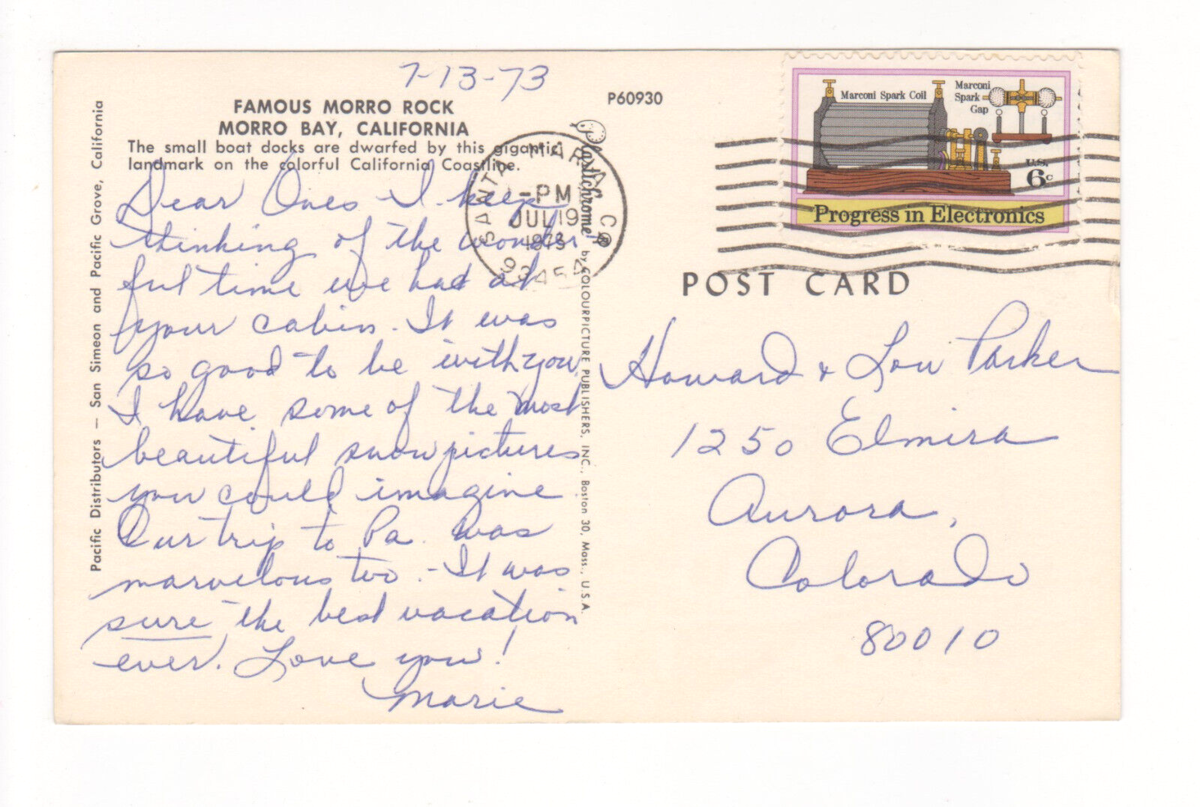 7-13-73
FAMOUS MORRO ROCK
MORRO BAY, CALIFORNIA
The small boat docks are dwarfed by this gigantic
landmark on the colorful California Coastline.
P60930
Dear Ones I keep
thinking of the wonder-
ful time we had at
your cabin. It was
so good to be with you.
I have some of the most
beautiful snow pictures
you could imagine.
Our trip to Pa. was
marvelous too. - It was
sure the best vacation
ever. Love you!
Marie
Pacific Distributors — San Simeon and Pacific Grove, California
Plastichrome ® by COLOURPICTURE PUBLISHERS, INC., Boston 30, Mass., U.S.A.
SANTA MARIA CA
PM
JUL 19
1973
93454
Marconi Spark Coil
Marconi
Spark
Gap
U.S.
6c
Progress in Electronics
POST CARD
Howard & Lou Parker
1250 Elmira
Aurora,
Colorado
80010